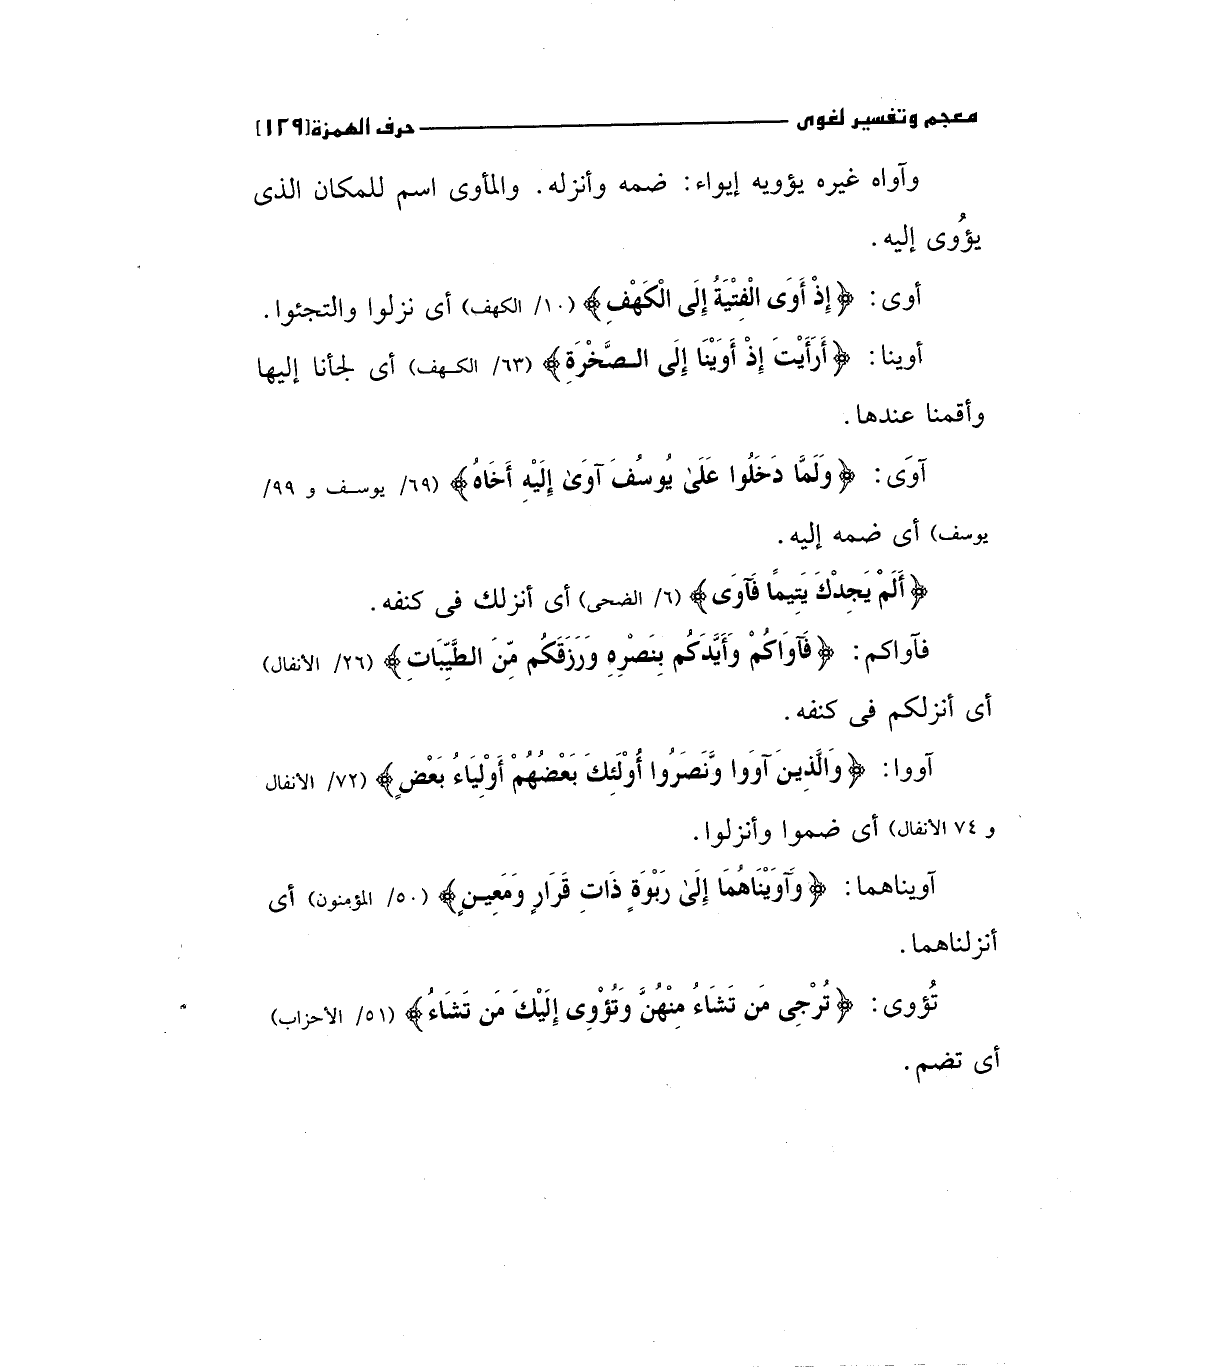 معجم وتفسير لغوى ــــــــ حرف الهمزة [١٢٩]
وآواه غيره يؤويه إيواء: ضمه وأنزله. والمأوى اسم للمكان الذى
يؤُوى إليه.
أوى: ﴿إِذْ أَوَى الْفِتْيَةُ إِلَى الْكَهْفِ﴾ (١٠/ الكهف) أى نزلوا والتجئوا.
أوينا: ﴿أَرَأَيْتَ إِذْ أَوَيْنَا إِلَى الصَّخْرَةِ﴾ (٦٣/ الكهف) أى لجأنا إليها
وأقمنا عندها.
آوَى: ﴿وَلَمَّا دَخَلُوا عَلَىٰ يُوسُفَ آوَىٰ إِلَيْهِ أَخَاهُ﴾ (٦٩/ يوسف و ٩٩/
يوسف) أى ضمه إليه.
﴿أَلَمْ يَجِدْكَ يَتِيمًا فَآوَى﴾ (٦/ الضحى) أى أنزلك فى كنفه.
فآواكم: ﴿فَآوَاكُمْ وَأَيَّدَكُم بِنَصْرِهِ وَرَزَقَكُم مِّنَ الطَّيِّبَاتِ﴾ (٢٦/ الأنفال)
أى أنزلكم فى كنفه.
آووا: ﴿وَالَّذِينَ آوَوا وَّنَصَرُوا أُوْلَئِكَ بَعْضُهُمْ أَوْلِيَاءُ بَعْضٍ﴾ (٧٢/ الأنفال
و ٧٤ الأنفال) أى ضموا وأنزلوا.
آويناهما: ﴿وَآوَيْنَاهُمَا إِلَىٰ رَبْوَةٍ ذَاتِ قَرَارٍ وَمَعِينٍ﴾ (٥٠/ المؤمنون) أى
أنزلناهما.
تُؤوى: ﴿تُرْجِى مَن تَشَاءُ مِنْهُنَّ وَتُؤْوِى إِلَيْكَ مَن تَشَاءُ﴾ (٥١/ الأحزاب)
أى تضم.